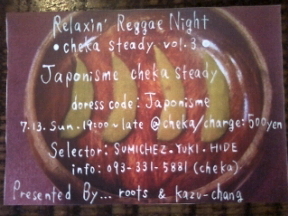 Relaxin' Reggae Night
• cheka steady vol.3 •
Japonisme cheka steady
doress code: Japonisme
7.13. Sun. 19:00~late @cheka/charge:500yen
Selector: SUMICHEZ. YUKI. HIDE
info: 093-331-5881 (cheka)
Presented By... roots & kazu-chang